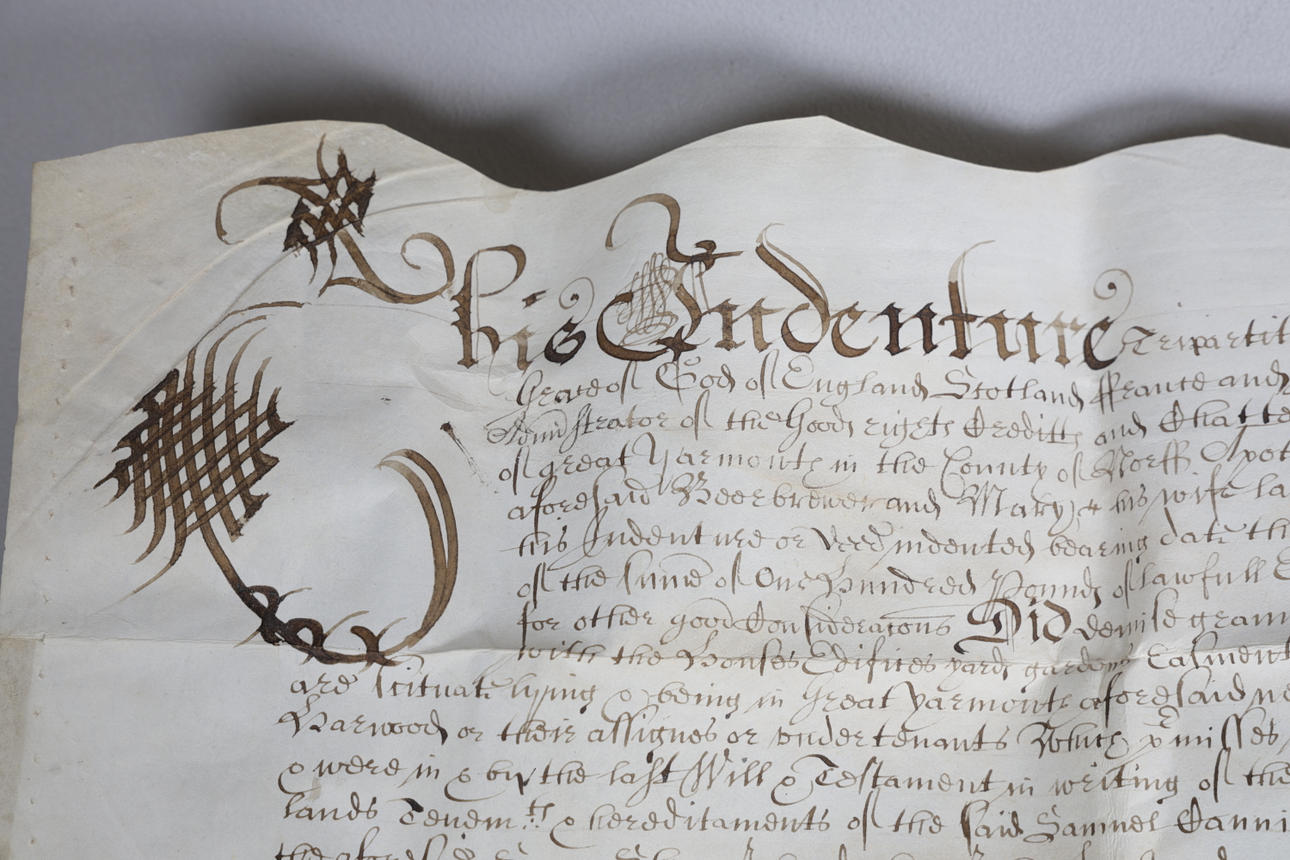 This Indenture Tripartit
Grace of God of England Scotland ffrance and
Administrator of the Goods rights Creditts and Chatte
of great Yarmouth in the County of Norff Apot
aforesaid Beerbrewer and Mary his wife la
this Indenture or Deed indented bearing date th
of the summe of One Hundred Pounds of lawfull E
for other good Consideracons Did demise graun
with the Houses Edifices yards gardens Easment
are scituate lying & being in Great Yarmouth aforesaid ne
Harwood or their assignes or undertenants Which p'misses
& were in & by the last Will & Testament in writing of the
lands Tenem.ts & hereditaments of the said Samuel Canni